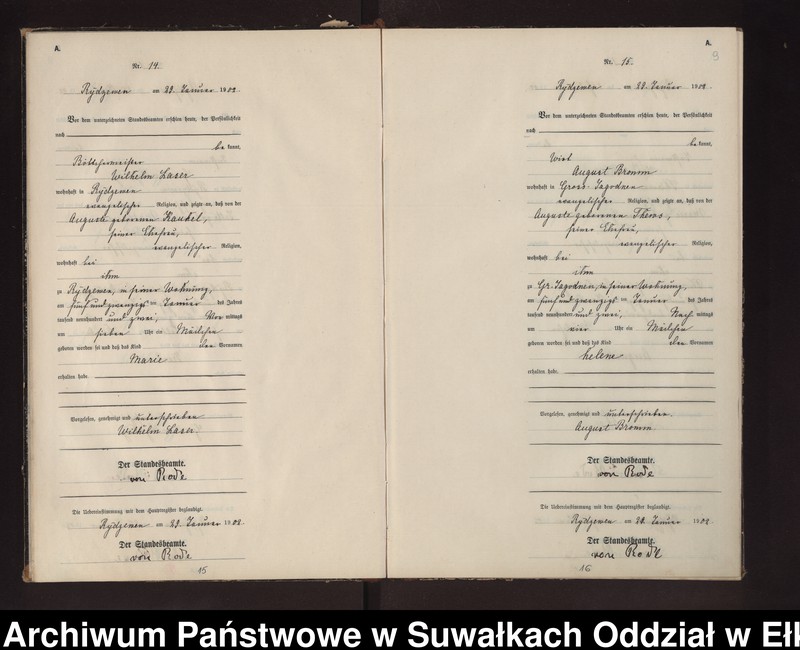 A.
Nr. 14.
Rydzewen am 29. Januar 1902.
Vor dem unterzeichneten Standesbeamten erschien heute, der Persönlichkeit
nach
be kannt,
Böttchermeister
Wilhelm Laser
wohnhaft in Rydzewen
evangelischer Religion, und zeigte an, daß von der
Auguste geborenen Kankel,
seiner Ehefrau,
evangelischer Religion,
wohnhaft bei
ihm
zu Rydzewen, in seiner Wohnung,
am fünfundzwanzigsten Januar des Jahres
tausend neunhundert und zwei, Vor mittags
um sieben Uhr ein Mädchen
geboren worden sei und daß das Kind den Vornamen
Marie
erhalten habe.
Vorgelesen, genehmigt und unterschrieben
Wilhelm Laser.
Der Standesbeamte.
von Rode
Die Uebereinstimmung mit dem Hauptregister beglaubigt.
Rydzewen am 29. Januar 1902.
Der Standesbeamte.
von Rode
15
A.
9
Nr. 15.
Rydzewen am 29. Januar 1902.
Vor dem unterzeichneten Standesbeamten erschien heute, der Persönlichkeit
nach
be kannt,
Wirt
August Bromm
wohnhaft in Gross-Jagodnen
evangelischer Religion, und zeigte an, daß von der
Auguste geborenen
seiner Ehefrau,
evangelischer Religion,
wohnhaft bei
ihm
zu Gr. Jagodnen, in seiner Wohnung,
am fünfundzwanzigsten Januar des Jahres
tausend neunhundert und zwei, Nach mittags
um vier Uhr ein Mädchen
geboren worden sei und daß das Kind den Vornamen
Helene
erhalten habe.
Vorgelesen, genehmigt und unterschrieben.
August Bromm.
Der Standesbeamte.
von Rode
Die Uebereinstimmung mit dem Hauptregister beglaubigt.
Rydzewen am 29. Januar 1902.
Der Standesbeamte.
von Rode
16
Archiwum Państwowe w Suwałkach Oddział w Ełk